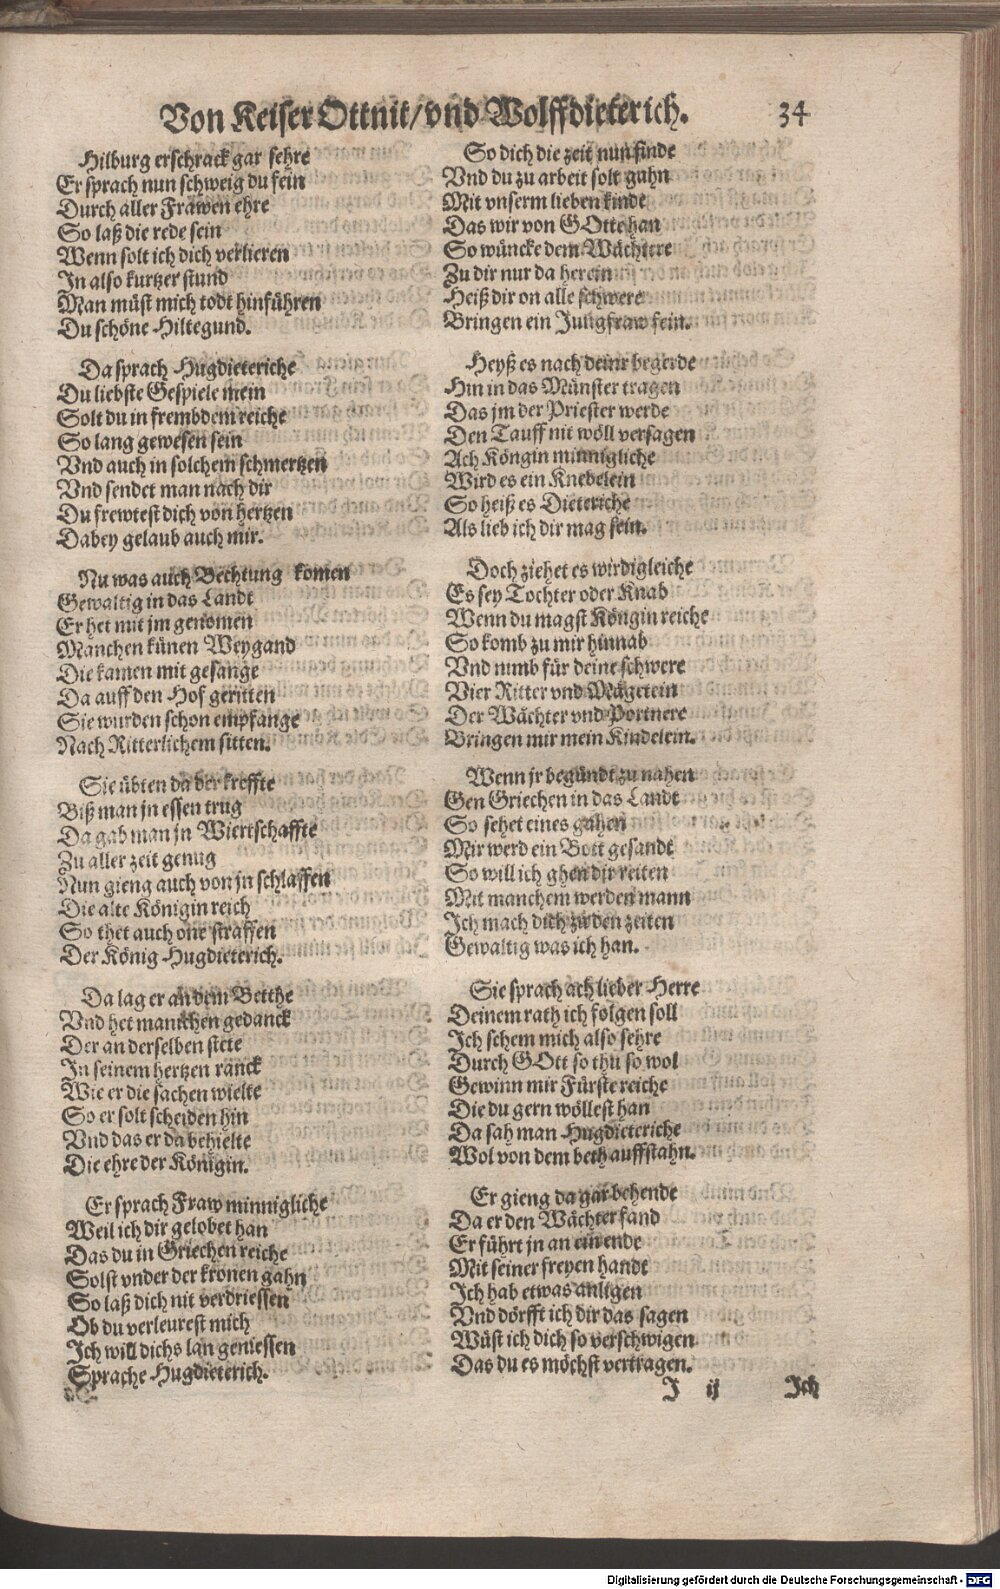 Von Keiser Ottnit/ vnd Wolffdieterich. 34
Hilburg erschrack gar sehre
Er sprach nun schweig du fein
Durch aller Frawen ehre
So laß die rede sein
Wenn solt ich dich verlieren
In also kurtzer stund
Man müst mich todt hinführen
Du schöne Hiltegund.
Da sprach Hugdieteriche
Du liebste Gespiele mein
Solt du in frembdem reiche
So lang gewesen sein
Vnd auch in solchem schmertzen
Vnd sendet man nach dir
Du frewtest dich von hertzen
Dabey gelaub auch mir.
Nu was auch Bechtung komen
Gewaltig in das Landt
Er het mit jm genomen
Manchen künen Weygand
Die kamen mit gesange
Da auff den Hof geritten
Sie wurden schon empfange
Nach Ritterlichem sitten.
Sie übten da der kreffte
Biß man jn essen trug
Da gab man jn Wiertschaffte
Zu aller zeit genug
Nun gieng auch von jn schlaffen
Die alte Königin reich
So thet auch one straffen
Der König Hugdieterich.
Da lag er an dem Betthe
Vnd het mannchen gedanck
Der an derselben stete
In seinem hertzen ränck
Wie er die sachen wielte
So er solt scheiden hin
Vnd das er da behielte
Die ehre der Königin.
Er sprach Fraw minnigliche
Weil ich dir gelobet han
Das du in Griechen reiche
Solst vnder der kronen gahn
So laß dich nit verdriessen
Ob du verleurest mich
Ich will dichs lan geniessen
Sprache Hugdieterich.
So dich die zeit nun finde
Vnd du zu arbeit solt gahn
Mit vnserm lieben kinde
Das wir von GOtte han
So wüncke dem Wächtere
Zu dir nur da herein
Heiß dir on alle schwere
Bringen ein Jungfraw fein.
Heyß es nach deinr begerde
Hin in das Münster tragen
Das jm der Priester werde
Den Tauff nit wöll versagen
Ach Köngin minnigliche
Wird es ein Knebelein
So heiß es Dieteriche
Als lieb ich dir mag sein.
Doch ziehet es wirdigleiche
Es sey Tochter oder Knab
Wenn du magst Köngin reiche
So komb zu mir hinnab
Vnd nimb für deine schwere
Vier Ritter vnd Mägetein
Der Wächter vnd Portnere
Bringen mir mein Kindelein.
Wenn jr begündt zu nahen
Gen Griechen in das Landt
So sehet eines gahen
Mir werd ein Bott gesandt
So will ich ghen dir reiten
Mit manchem werden mann
Ich mach dich zu den zeiten
Gewaltig was ich han.
Sie sprach ach lieber Herre
Deinem rath ich folgen soll
Ich schem mich also sehre
Durch GOtt so thu so wol
Gewinn mir Fürste reiche
Die du gern wöllest han
Da sah man Hugdieteriche
Wol von dem beth auffstahn.
Er gieng da gar behende
Da er den Wächter fand
Er führt jn an ein ende
Mit seiner freyen handt
Ich hab etwas anligen
Vnd dörfft ich dir das sagen
Wüst ich dich so verschwigen
Das du es möchst vertragen.
J ij Ich
Digitalisierung gefördert durch die Deutsche Forschungsgemeinschaft - DFG